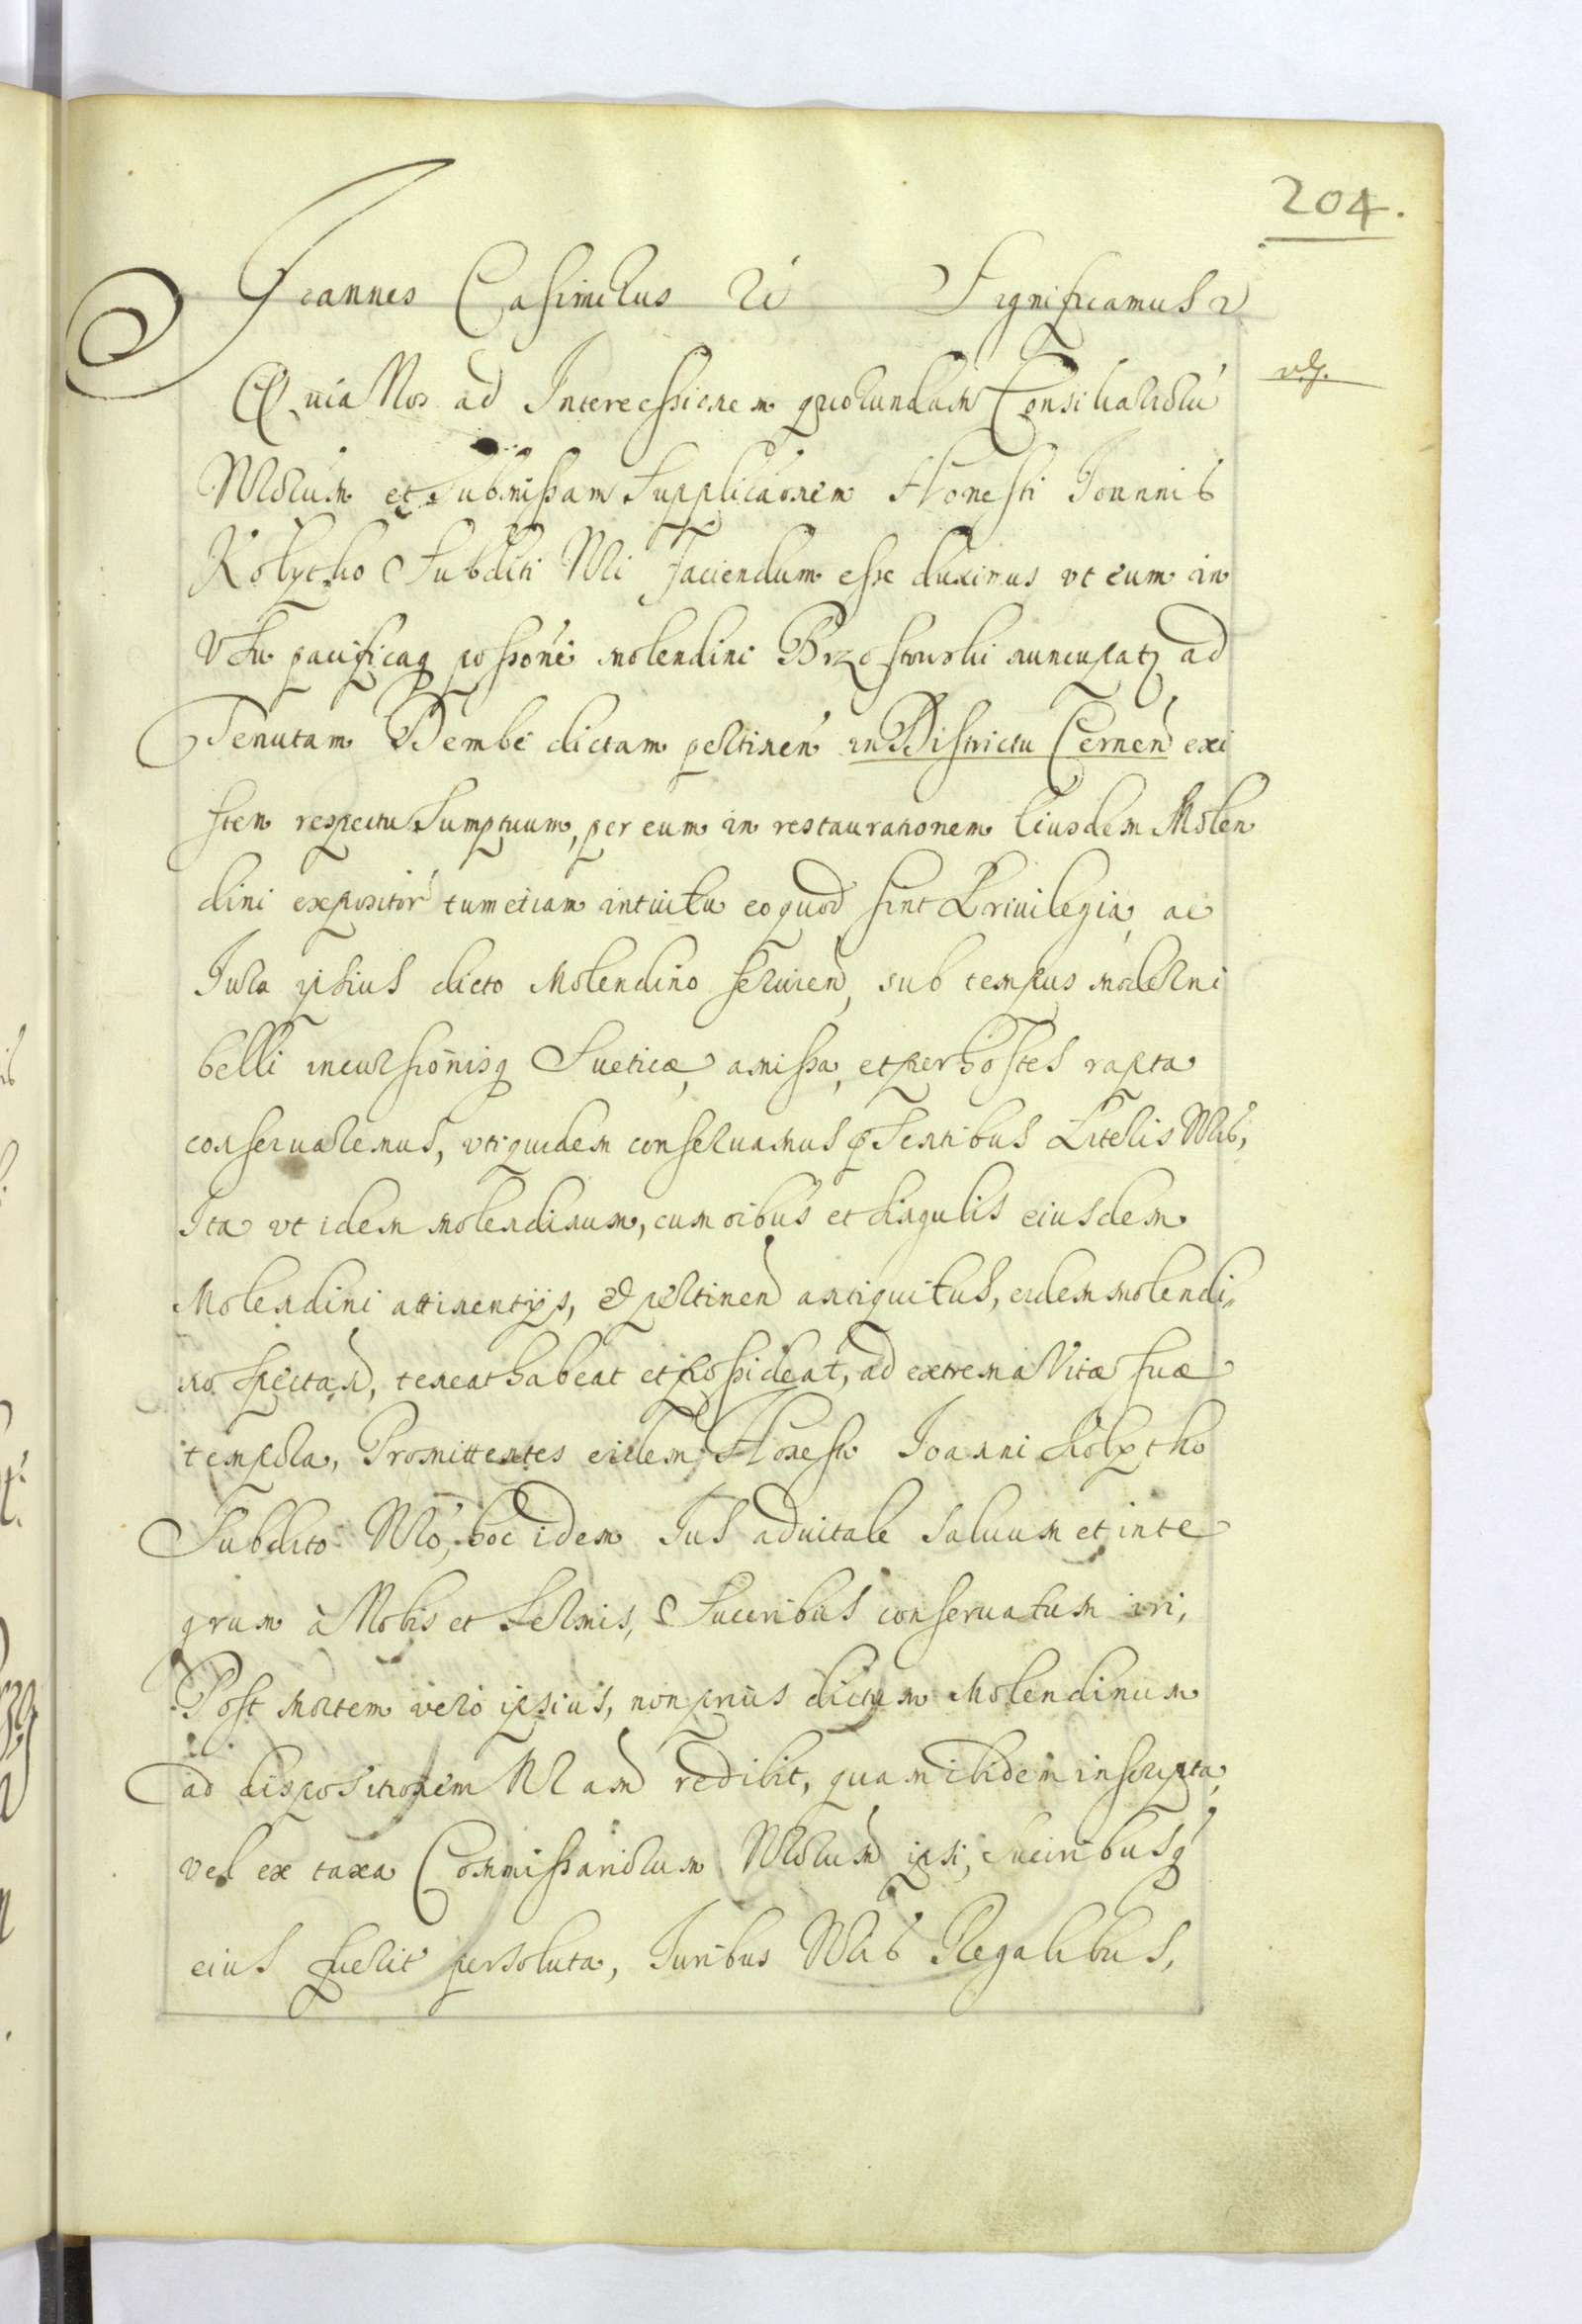 204.
Joannes Casimirus Significamus
Quia Nos ad Intercessionem quorundam Consiliariorū
Nrōrum et submissam Supplicaōnem Honesti Joannis
Kolycho Subditi Nri faciendum esse duximus vt eum in
Vsu pacificaq possōne molendini Brzostowski nuncupatj ad
Tenutam Dembe dictam pertinen in Districtu Cernen exi
sten respectu Sumptuum, per eum in restaurationem Eiusdem Molen
dini expositor tum etiam intuitu eo quod sint Priuilegia, ac
Jura ipsius dicto Molendino seruien, sub tempus moderni
belli incursiōnisq Sueticæ, amissa, et per hostes rapta
conseruaremus, vti quidem conseruamus pōsentibus Literis Nris,
Ita vt idem molendinum, cum oībus et singulis eiusdem
Molendini attinentijs, & pertinen antiquitus, eidem molendi„
no spectan, teneat habeat et possideat, ad extrema Vitæ suæ
tempora, Promittentes eidem Honesto Joanni Kolycho
Subdito Nrō, hoc idem Jus aduitale saluum et inte
grum à Nobis et Sermis, Succribus conseruatum iri,
Post mortem vero ipsius, non prius dictum Molendinum
ad dispositionem Nram redibit, quam ibidem inscripta,
vel ex taxa Commissariorum Nrorum ipsi, Succribusq
eius fuerit persoluta, Juribus Nris Regalibus,